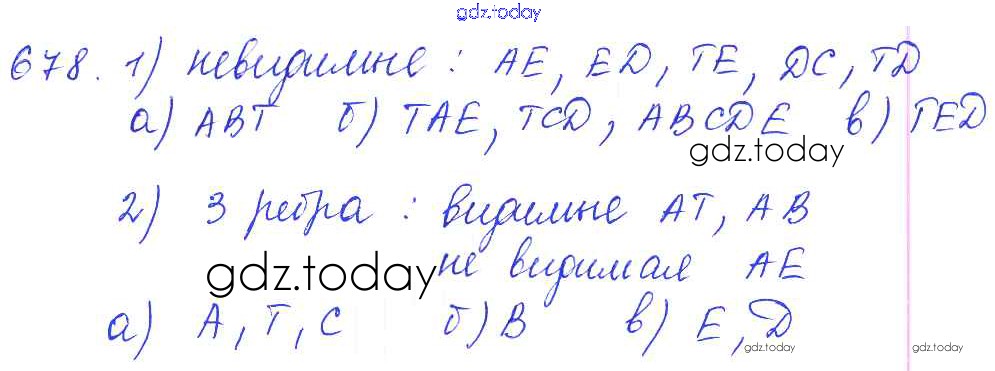 gdz.today
678. 1) невидимые : AE, ED, TE, DC, TD
а) ABT б) TAE, TCD, ABCDE в) TED
gdz.today
2) 3 ребра : видимые AT, AB
gdz.today не видимая AE
а) A, T, C б) B в) E, D
gdz.today gdz.today